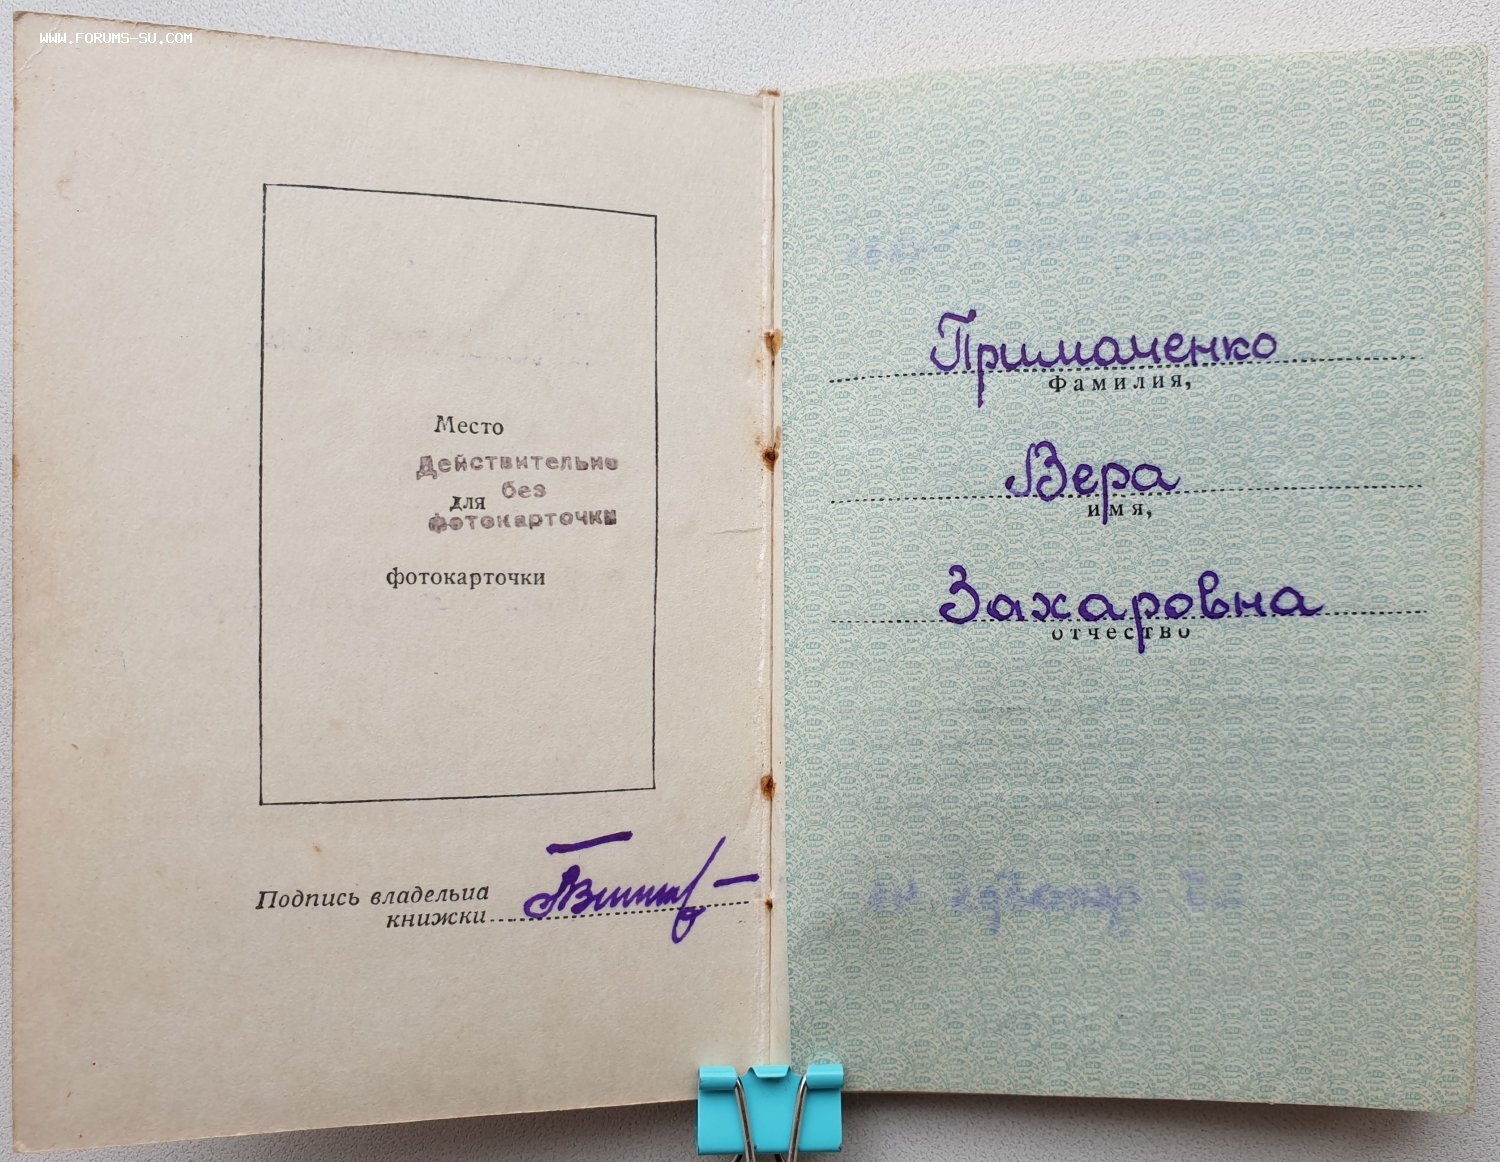 WWW.FORUMS-SU.COM
Место
Действительно
без
для
фотокарточки
фотокарточки
Подпись владельца
книжки
Примаченко
Фамилия,
Вера
имя,
Захаровна
отчество